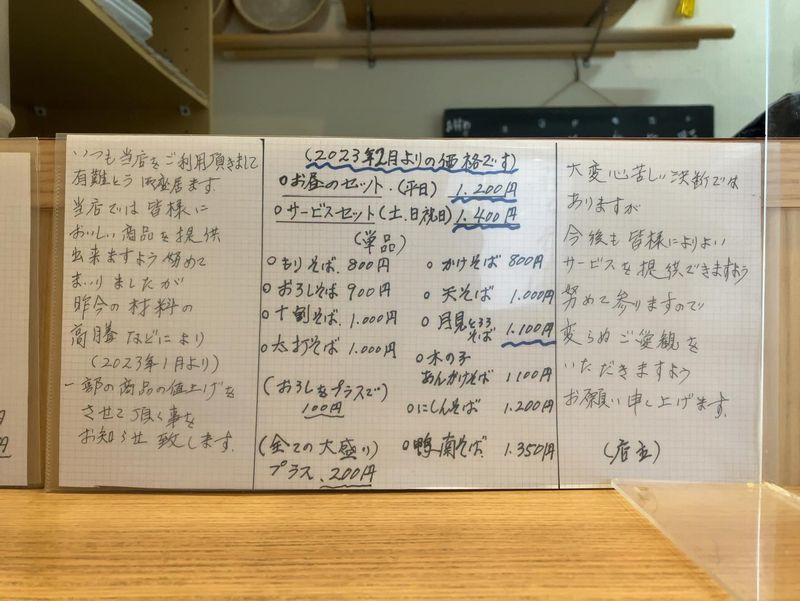 いつも当店をご利用頂きまして
有難とう御座居ます
当店では皆様に
おいしい商品を提供
出来ますよう努めて
まいりましたが
昨今の材料の
高騰などにより
(2023年1月より)
一部の商品の値上げを
させて頂く事を
お知らせ致します.
(2023年2月よりの価格です)
○お昼のセット.(平日) 1.200円
○サービスセット(土、日祝日) 1.400円
(単品)
○もりそば. 800円
○おろしそば 900円
○十割そば. 1.000円
○太打そば 1.000円
(おろしをプラスで)
100円
(全ての大盛り)
プラス.200円
○かけそば 800円
○天そば 1.000円
○月見とろろそば 1.100円
○木の子
あんかけそば 1100円
○にしんそば 1.200円
○鴨南そば. 1.350円
大変心苦しい決断では
ありますが
今後も皆様によりよい
サービスを提供できますよう
努めて参りますので
変らぬご愛観を
いただきますよう
お願い申し上げます.
(店主)